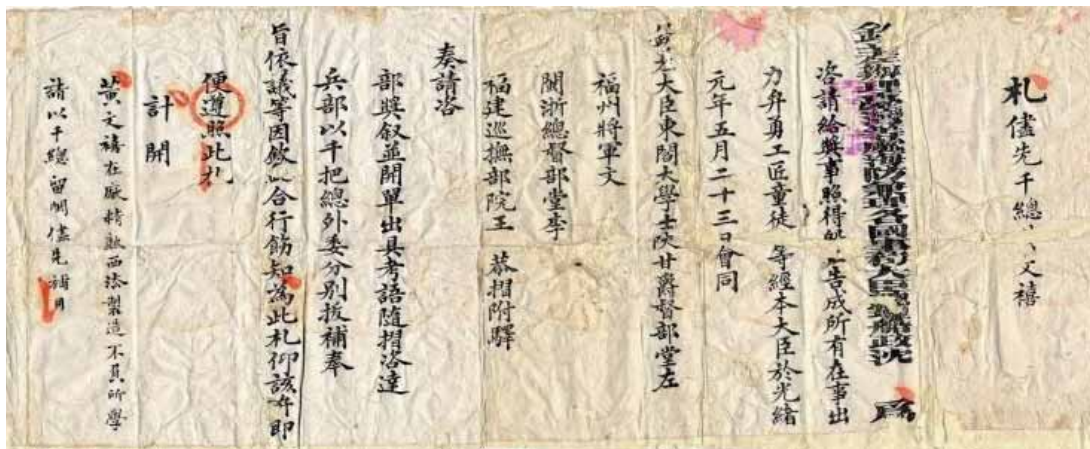 札儘先千總文禧
欽差辦理臺灣等處海防兼理各國事務大臣總理船政沈 為
咨請給獎事照得告成所有在事出
力弁勇工匠童徒 等經本大臣於光緒
元年五月二十三日會同
欽差大臣東閣大學士陝甘爵督部堂左
福州將軍文
閩浙總督部堂李
福建巡撫部院王 恭摺附驛
奏請咨
部獎叙並開單出具考語隨摺咨達
兵部以千把總外委分別拔補奉
旨依議等因欽此合行飭知為此札仰該弁即
便遵照此札
計開
黃文禧在廠精熟西法製造不負所學
請以千總留閩儘先補用